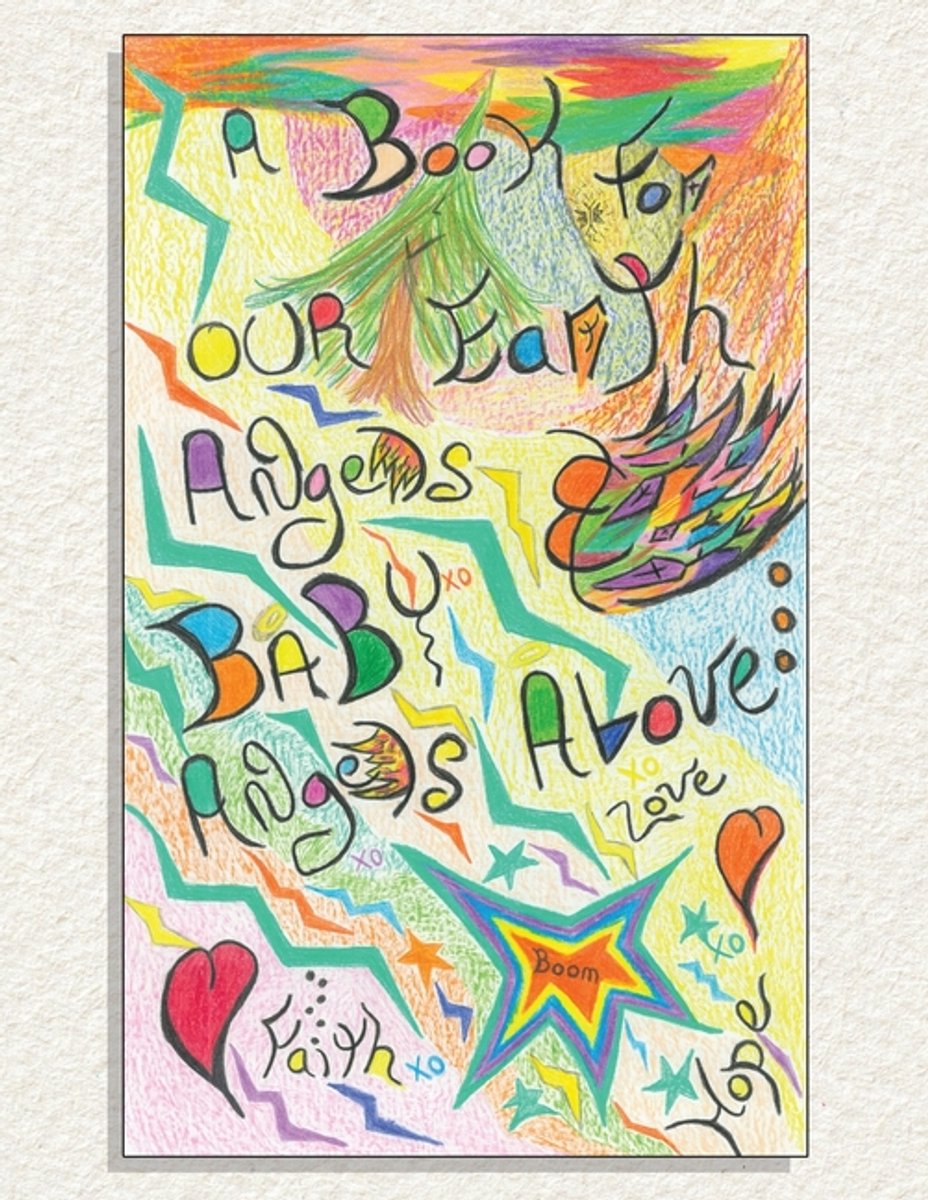 A Book for
OUR Earth
Angels &
BABY XO
Above:
Angels
XO
Love
XO
XO
Boom
Faith XO
Hope